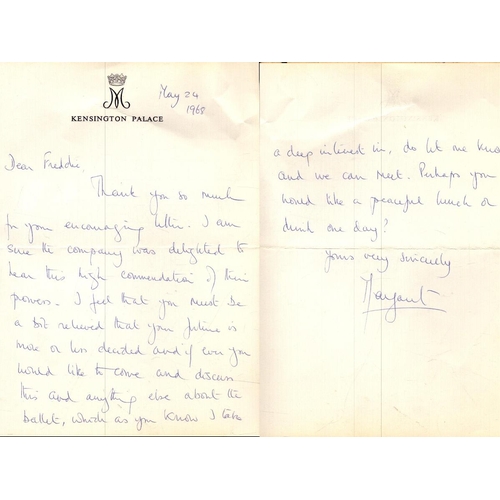 M
May 24
1968
KENSINGTON PALACE
Dear Freddie,
Thank you so much
for your encouraging letter. I am
sure the company was delighted to
hear this high commendation of their
powers. I feel that you must be
a bit relieved that your future is
more or less decided and if ever you
would like to come and discuss
this and anything else about the
ballet, which as you know I take
a deep interest in, do let me know
and we can meet. Perhaps you
would like a peaceful lunch or
drink one day?
Yours very sincerely
Margaret